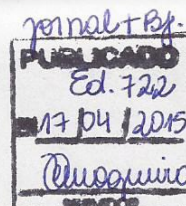 jornal + Bj.
PUBLICADO
Ed. 722
17 / 04 / 2015